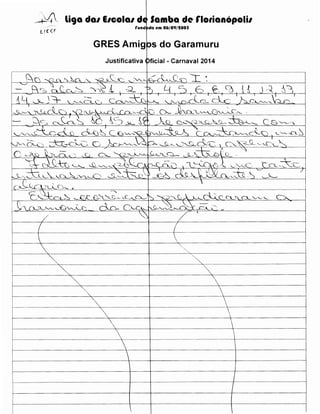 Liga das Escolas de Samba de Florianópolis
Fundada em 06/09/2002
GRES Amigos do Garamuru
Justificativa Oficial - Carnaval 2014
Ao passar pelo módulo I:
- As alas nº 1, 2, 3, 4, 5, 6, 8, 9, 11, 12, 13,
14, e 17 não cantou nada do samba
enredo, prejudicando a harmonia.
- As alas 10, 15 e 18 se apresentou com
metade dos componentes cantando, mas
não todo o samba enredo, apenas
o refrão e a primeira estrofe.
Faltou empolgação, vigor no canto,
entusiasmo entre os desfilantes e
alegria.
Estas ocorrências prejudicaram a
harmonia da agremiação.